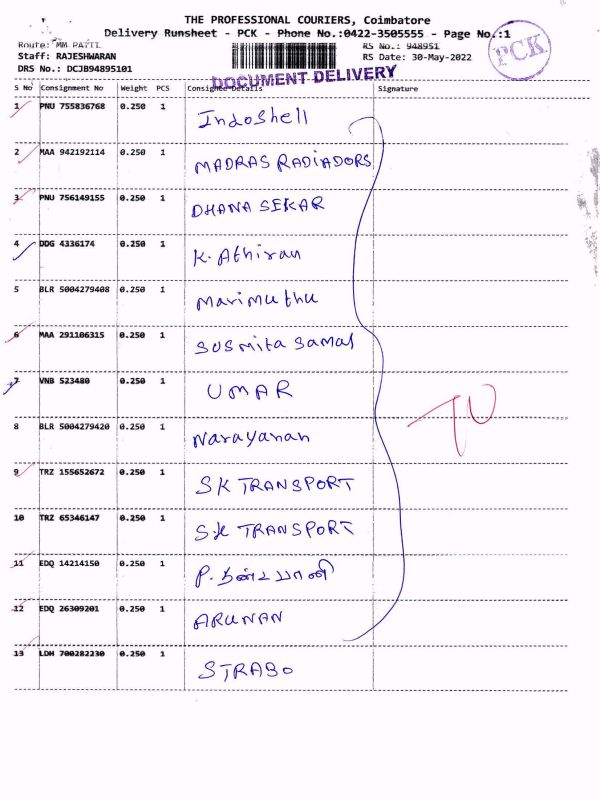 THE PROFESSIONAL COURIERS, Coimbatore
Delivery Runsheet - PCK - Phone No.:0422-3505555 - Page No.:1
Route: MM PATTI RS No.: 948951
Staff: RAJESHWARAN RS Date: 30-May-2022
DRS No.: DCJB94895101
PCK
DOCUMENT DELIVERY
S No Consignment No Weight PCS Consignee Details Signature
1 PNU 755836768 0.250 1 Indoshell
2 MAA 942192114 0.250 1 MADRAS RADIADORS
3 PNU 756149155 0.250 1 DHANA SEKAR
4 DDG 4336174 0.250 1 K. Athiran
5 BLR 5004279408 0.250 1 Marimuthu
6 MAA 291106315 0.250 1 Susmita Samal
7 VNB 523480 0.250 1 UMAR
8 BLR 5004279420 0.250 1 Narayanan
9 TRZ 155652672 0.250 1 SK TRANSPORT
10 TRZ 65346147 0.250 1 S.K TRANSPORT
11 EDQ 14214150 0.250 1 P.
12 EDQ 26309201 0.250 1 ARUNAN
13 LDH 700282230 0.250 1 STRABO